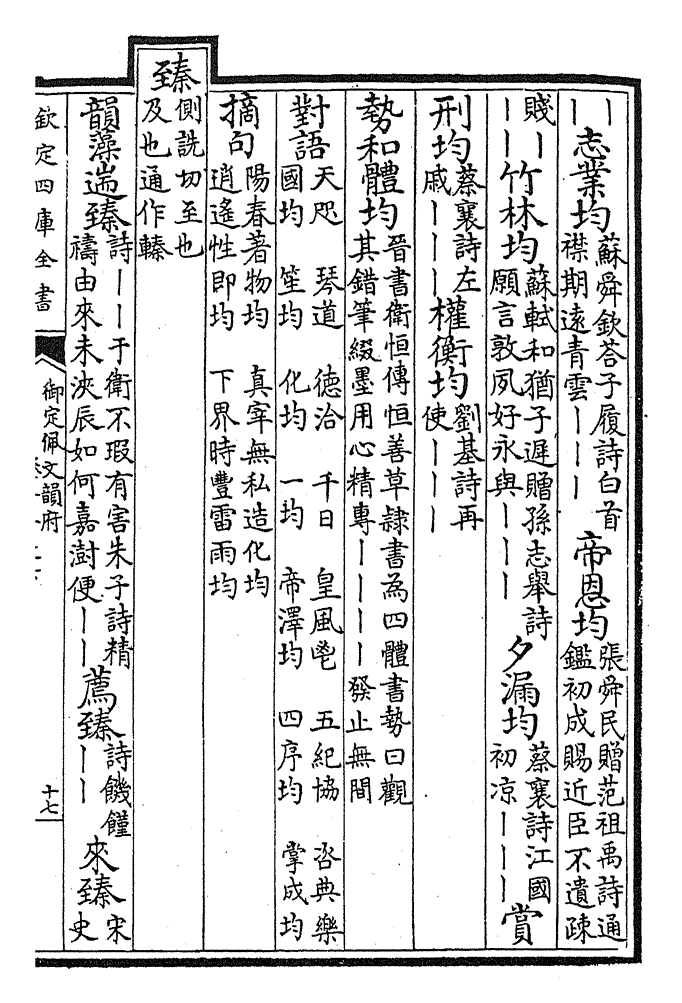 ｜｜志業均蘇舜欽荅子履詩白首襟期遠青雲｜｜｜帝恩均張舜民贈范祖禹詩通鑑初成賜近臣不遺疎
賤｜｜｜竹林均蘇軾和猶子遲贈孫志舉詩願言敦夙好永與｜｜｜夕漏均蔡襄詩江國初凉｜｜｜賞
刑均蔡襄詩左戚｜｜｜權衡均劉基詩再使｜｜｜
勢和體均晉書衛恒傳恒善草隸書為四體書勢曰觀其錯筆綴墨用心精專｜｜｜｜發止無間
對語 天咫國均 琴道笙均 德洽化均 千日一均 皇風鬯帝澤均 五紀協四序均 咨典樂掌成均
摘句 陽春著物均逍遙性即均 真宰無私造化均下界時豐雷雨均
臻側詵切至也及也通作轃
韻藻遄臻詩｜｜于衛不瑕有害朱子詩精禱由來未浹辰如何嘉澍便｜｜薦臻詩饑饉｜｜來臻宋史
欽定四庫全書
御定佩文韻府
十七